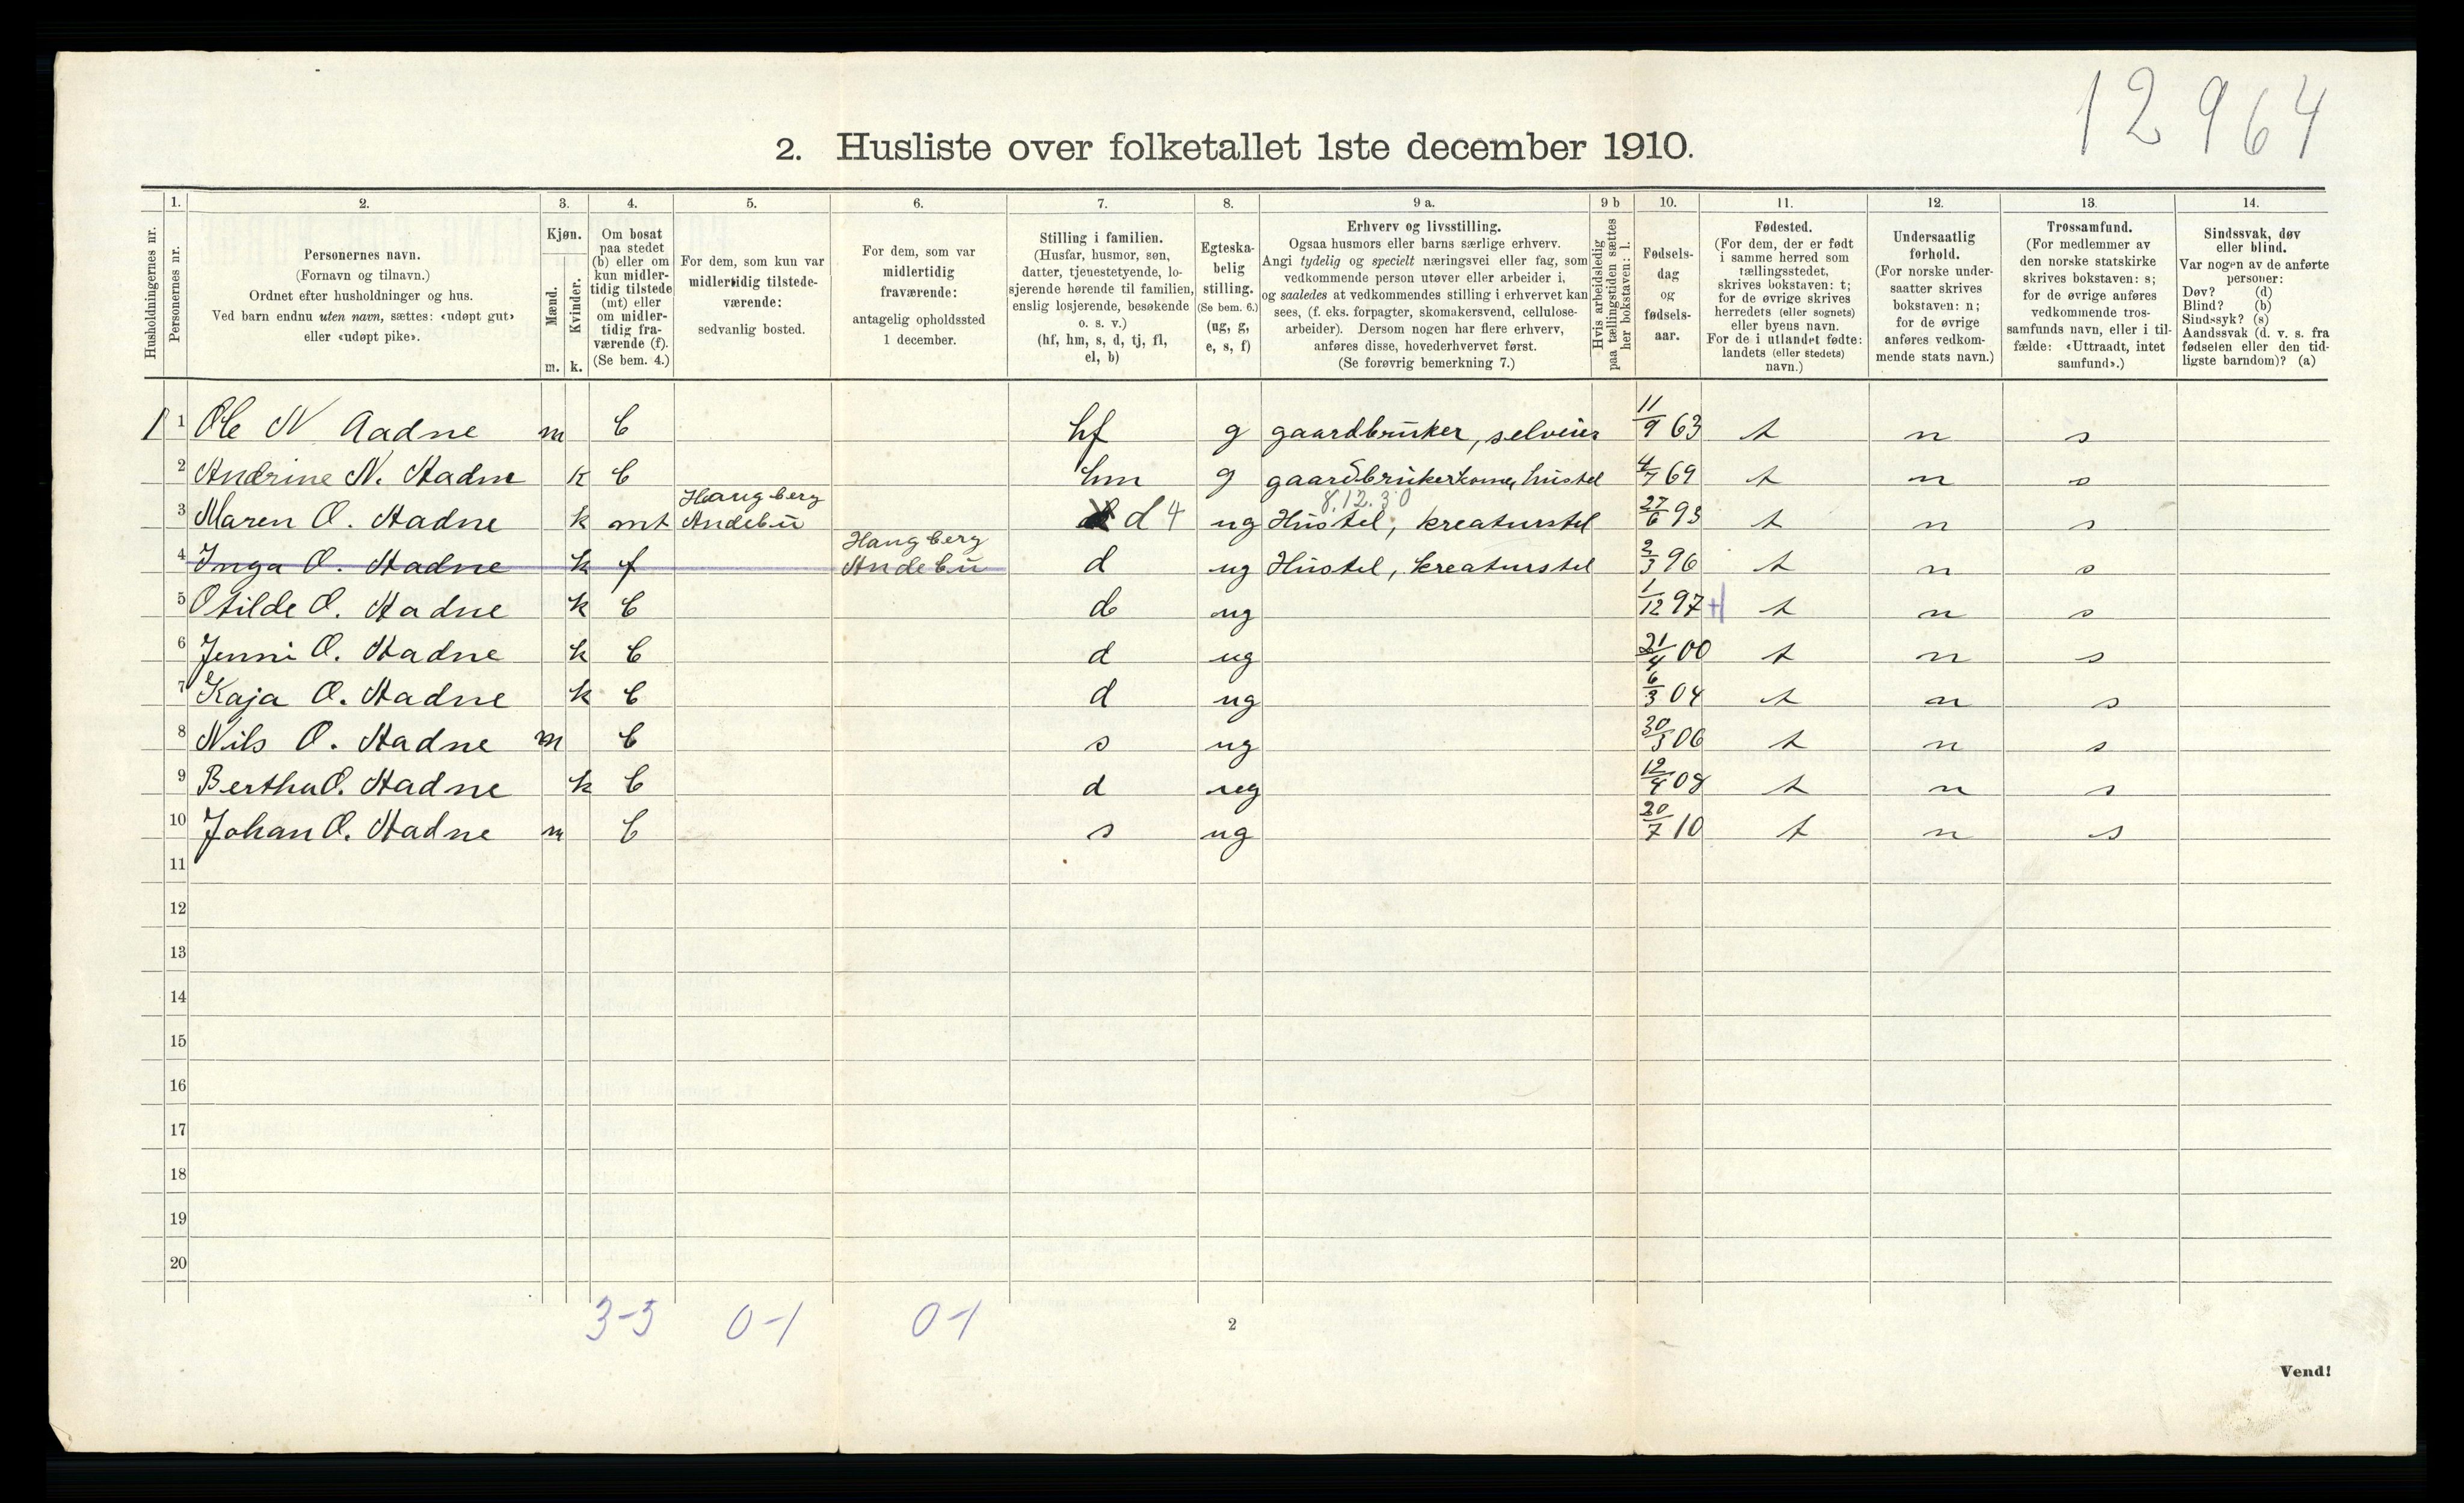 12964
2. Husliste over folketallet 1ste december 1910.
Husholdningernes nr.
1.
Personernes nr.
2.
Personernes navn.
(Fornavn og tilnavn.)
Ordnet efter husholdninger og hus.
Ved barn endnu uten navn, sættes: «udøpt gut»
eller «udøpt pike».
3.
Kjøn.
Mænd.
Kvinder.
m. k.
4.
Om bosat
paa stedet
(b) eller om
kun midler-
tidig tilstede
(mt) eller
om midler-
tidig fra-
værende (f).
(Se bem. 4.)
5.
For dem, som kun var
midlertidig tilstede-
værende:
sedvanlig bosted.
6.
For dem, som var
midlertidig
fraværende:
antagelig opholdssted
1 december.
7.
Stilling i familien.
(Husfar, husmor, søn,
datter, tjenestetyende, lo-
sjerende hørende til familien,
enslig losjerende, besøkende
o. s. v.)
(hf, hm, s, d, tj, fl,
el, b)
8.
Egteska-
belig
stilling.
(Se bem. 6.)
(ug, g,
e, s, f)
9 a.
Erhverv og livsstilling.
Ogsaa husmors eller barns særlige erhverv.
Angi tydelig og specielt næringsvei eller fag, som
vedkommende person utøver eller arbeider i,
og saaledes at vedkommendes stilling i erhvervet kan
sees, (f. eks. forpagter, skomakersvend, cellulose-
arbeider). Dersom nogen har flere erhverv,
anføres disse, hovederhvervet først.
(Se forøvrig bemerkning 7.)
9 b
Hvis arbeidsledig
paa tællingstiden sættes
her bokstaven: l.
10.
Fødsels-
dag
og
fødsels-
aar.
11.
Fødested.
(For dem, der er født
i samme herred som
tællingsstedet,
skrives bokstaven: t;
for de øvrige skrives
herredets (eller sognets)
eller byens navn.
For de i utlandet fødte:
landets (eller stedets)
navn.)
12.
Undersaatlig
forhold.
(For norske under-
saatter skrives
bokstaven: n;
for de øvrige
anføres vedkom-
mende stats navn.)
13.
Trossamfund.
(For medlemmer av
den norske statskirke
skrives bokstaven: s;
for de øvrige anføres
vedkommende tros-
samfunds navn, eller i til-
fælde: «Uttraadt, intet
samfund».)
14.
Sindssvak, døv
eller blind.
Var nogen av de anførte
personer:
Døv? (d)
Blind? (b)
Sindssyk? (s)
Aandssvak (d. v. s. fra
fødselen eller den tid-
ligste barndom)? (a)
1 1 Ole N Aadne m b hf g gaardbruker, selveier 11/9 63 t n s
2 Andrine N. Aadne k b hm g gaardbrukerkone, hustel 4/7 69 t n s
Haugberg 8.12.30
3 Maren O. Aadne k mt Andebu d 4 ug Hustel, kreaturstel 27/6 93 t n s
Haugberg
4 Inga O. Aadne k f Andebu d ug Hustel, kreaturstel 2/3 96 t n s
5 Otilde O. Aadne k b d ug 1/12 97 t n s
6 Jenni O. Aadne k b d ug 21/4 00 t n s
7 Kaja O. Aadne k b d ug 6/3 04 t n s
8 Nils O. Aadne m b s ug 30/3 06 t n s
9 Bertha O. Aadne k b d ug 12/4 08 t n s
10 Johan O. Aadne m b s ug 20/7 10 t n s
11
12
13
14
15
16
17
18
19
20
3-5 0-1 0-1
2
Vend!